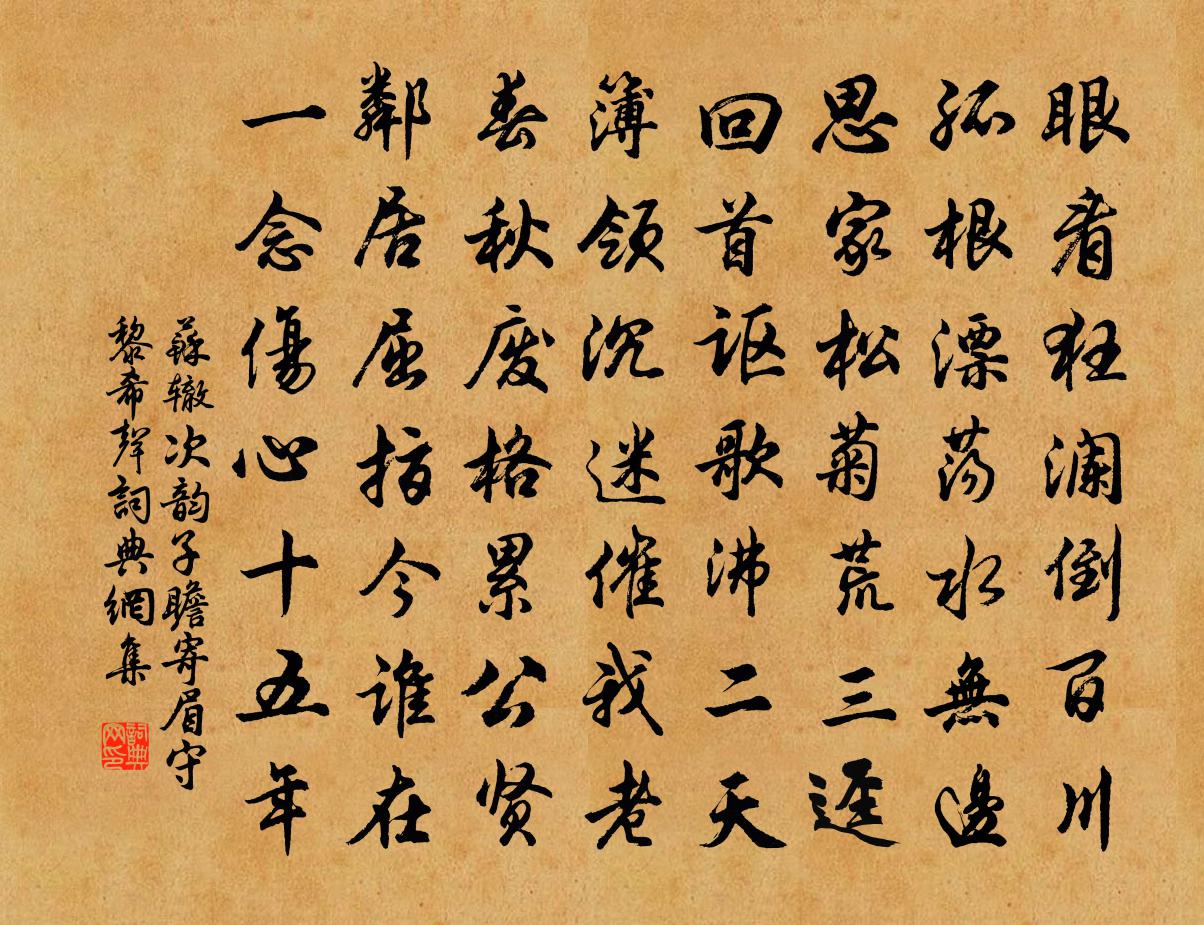 眼看狂澜倒百川
孤根漂荡水無邊
思家松菊荒三逕
回首讴歌沸二天
簿领沉迷催我老
春秋废格累公贤
鄰居屈指今谁在
一念傷心十五年
蘇辙次韵子瞻寄眉守
黎希聲詞典網集
詞典
网印